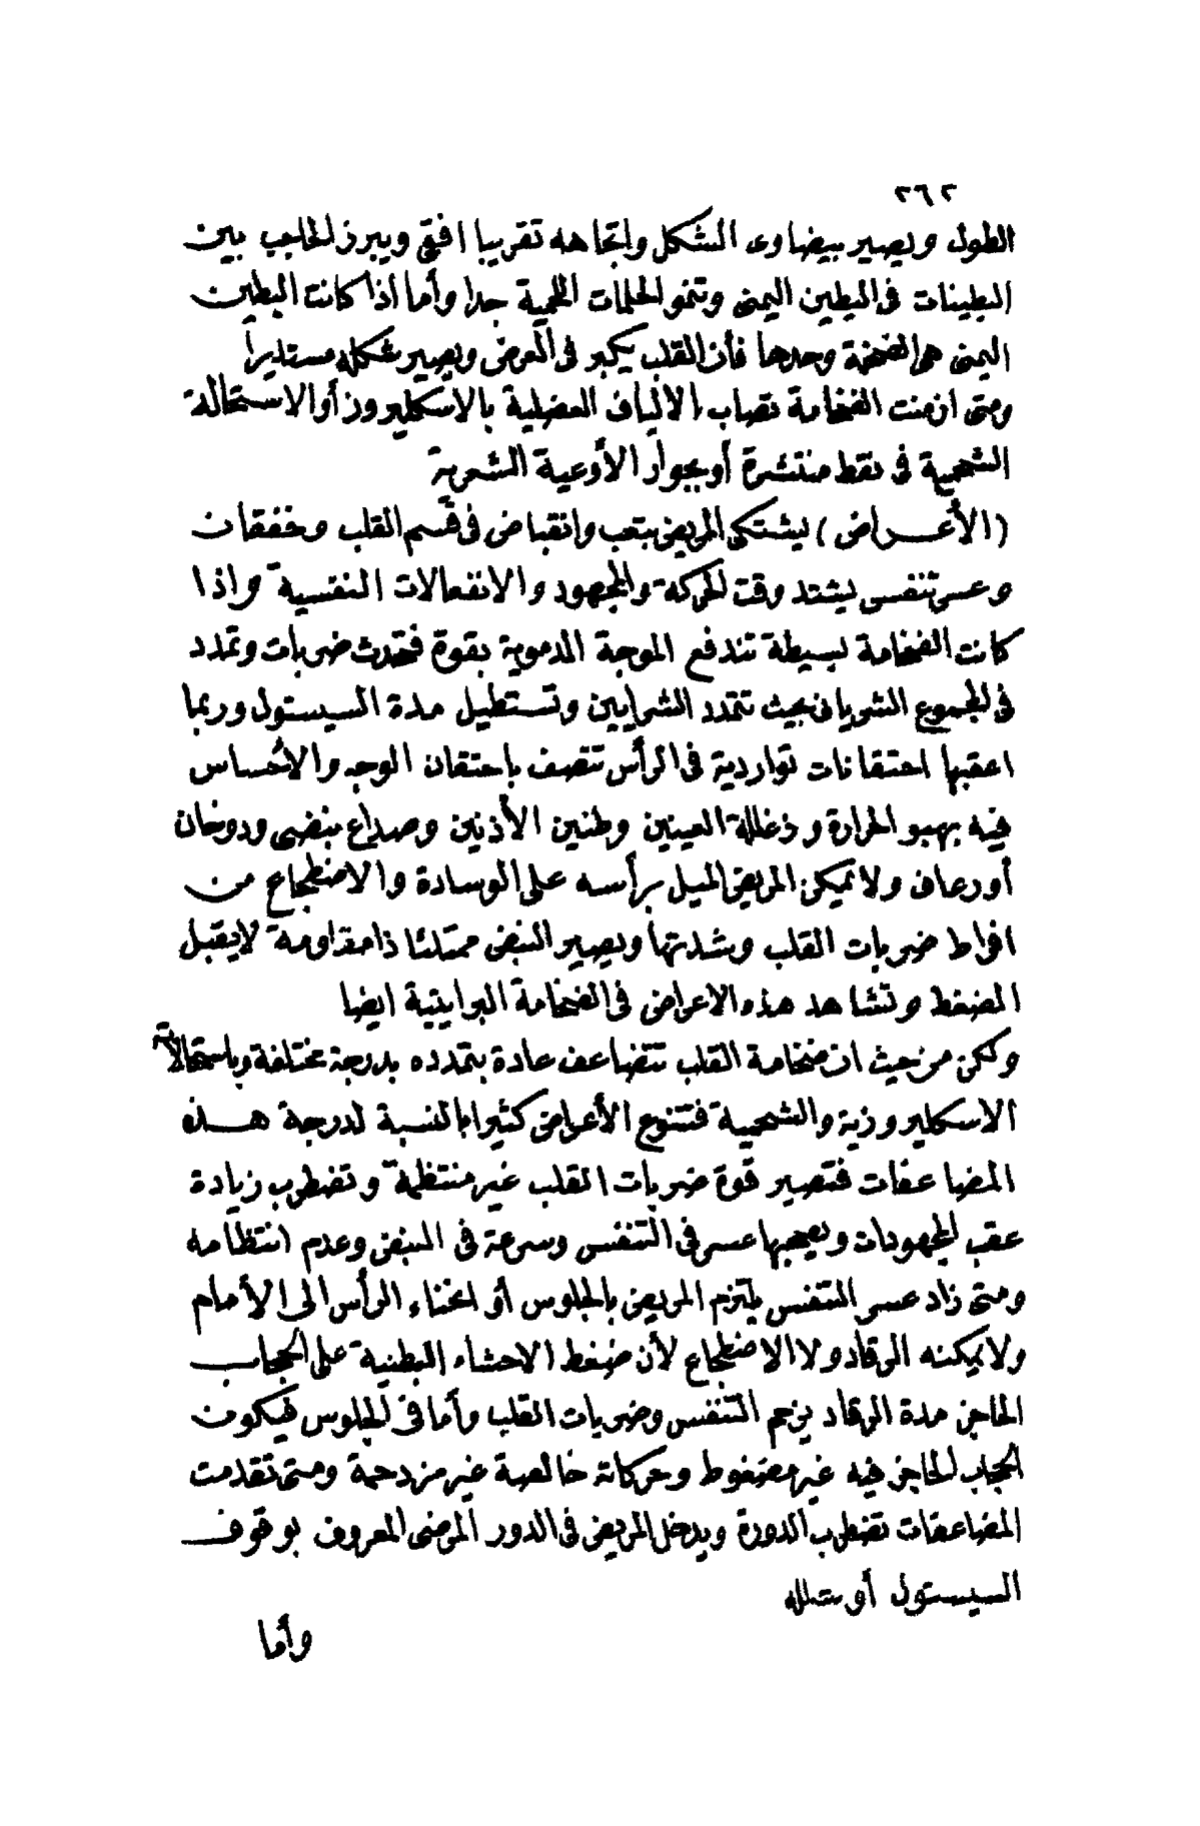 ٢٦٢
الطول ويصير بيضاوى الشكل واتجاهه تقريبا افقى ويبرز الحاجب بين
البطينات فى البطين اليمنى وتنمو الحلمات اللحمية جدا وأما اذا كانت البطين
اليمنى هى الضخمة وحدها فأن القلب يكبر فى العرض ويصير شكله مستديرا
ومتى ازمنت الضخامة تصاب الألياف العضلية بالاسكليروز أو الاستحالة
الشحمية فى نقط منتشرة أو بجوار الأوعية الشعرية
(الأعراض) يشتكى المريض بتعب وانقباض فى قسم القلب وخفقان
وعسر تنفس يشتد وقت الحركة والمجهود والانفعالات النفسية واذا
كانت الضخامة بسيطة تندفع الموجة الدموية بقوة فتحدث ضربات وتمدد
فى المجموع الشريانى بحيث تتمدد الشرايين وتستطيل مدة السيستول وربما
اعقبها احتقانات تواردية فى الرأس تتصف باحتقان الوجه والأحساس
فيه بهبو الحرارة وزغللة العينين وطنين الأذنين وصداع نبضى ودوخان
أو رعاف ولا يمكن المريض الميل برأسه على الوسادة والاضطجاع من
افراط ضربات القلب وشدتها ويصير النبض ممتلئا ذا مقاومة لا يقبل
الضغط وتشاهد هذه الاعراض فى الضخامة البرايتية ايضا
ولكن من حيث ان ضخامة القلب تتضاعف عادة بتمدده بدرجة مختلفة وباستحالاته
الاسكليروزية والشحمية فتتنوع الأعراض كثيرا بالنسبة لدرجة هذه
المضاعفات فتصير قوة ضربات القلب غير منتظمة وتضطرب زيادة
عقب المجهودات ويصحبها عسر فى التنفس وسرعة فى النبض وعدم انتظامه
ومتى زاد عسر التنفس يلتزم المريض بالجلوس أو انحناء الرأس الى الأمام
ولا يمكنه الرقاد ولا الاضطجاع لأن ضغط الاحشاء البطنية على الحجاب
الحاجز مدة الرقاد يزحم التنفس وضربات القلب وأما فى الجلوس فيكون
الحجاب الحاجز فيه غير مضغوط وحركاته خالصة غير مزدحمة ومتى تقدمت
المضاعفات تضطرب الدورة ويدخل المريض فى الدور المرضى المعروف بوقوف
السيستول أو شلله
وأما